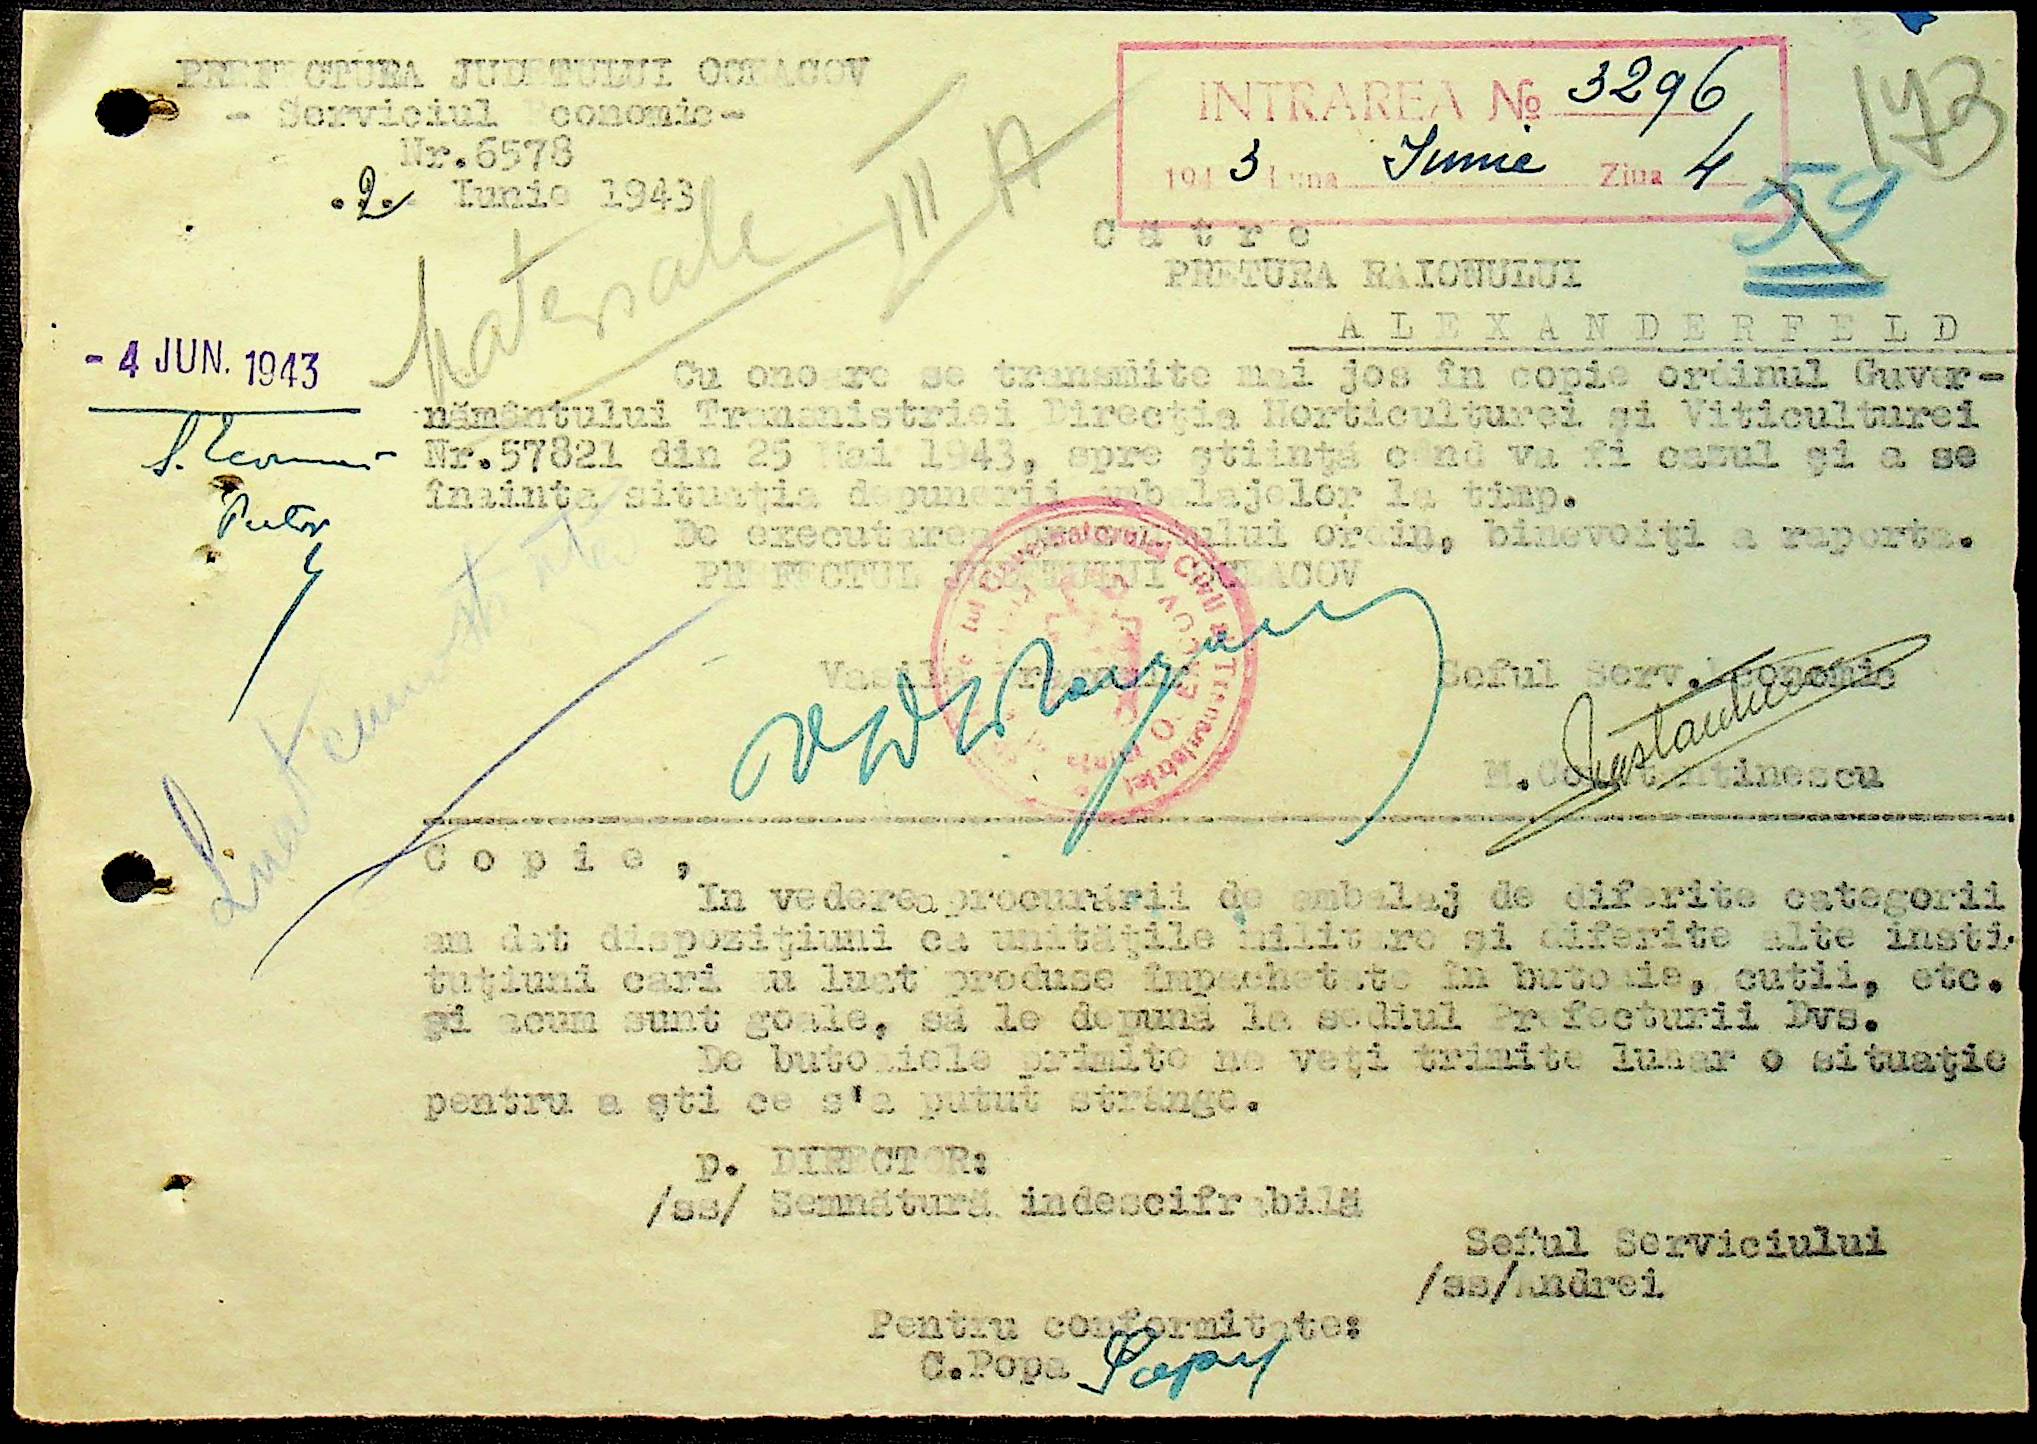 PREFECTURA JUDETULUI OCEACOV
- Serviciul Economic-
Nr.6578
.2. Iunie 1943
INTRAREA No 3296
1943 Luna Iunie Ziua 4
173
59
Materiale III A
C a t r e
PRETURA RAIONULUI
A L E X A N D E R F E L D
- 4 JUN. 1943
Pretor
Cu onoare se transmite mai jos în copie ordinul Guver-
nământului Transnistriei Direcţia Horticulturei şi Viticulturei
Nr.57821 din 25 Mai 1943, spre ştiinţă când va fi cazul şi a se
înainta situaţia depunerii ambalajelor la timp.
De executarea prezentului ordin, binevoiţi a raporta.
PREFECTUL JUDETULUI OCEACOV
Vasile
Seful Serv. Economic
M.Constantinescu
C o p i e ,
In vederea procurării de ambalaj de diferite categorii
am dat dispoziţiuni ca unităţile militare şi diferite alte insti-
tuţiuni cari au luat produse împachetate în butoaie, cutii, etc.
şi acum sunt goale, să le depună la sediul Prefecturii Dvs.
De butoaiele primite ne veţi trimite lunar o situaţie
pentru a şti ce s'a putut strânge.
p. DIRECTOR:
/ss/ Semnătură indescifrabilă
Seful Serviciului
/ss/Andrei
Pentru conformitate:
C.Popa Popa